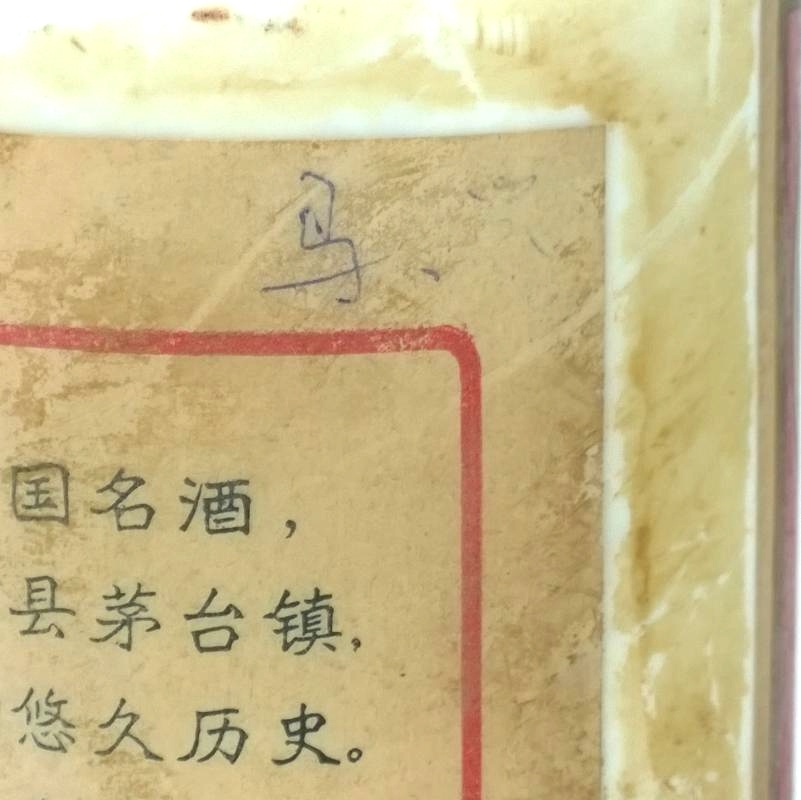 马、
国名酒，
县茅台镇，
悠久历史。